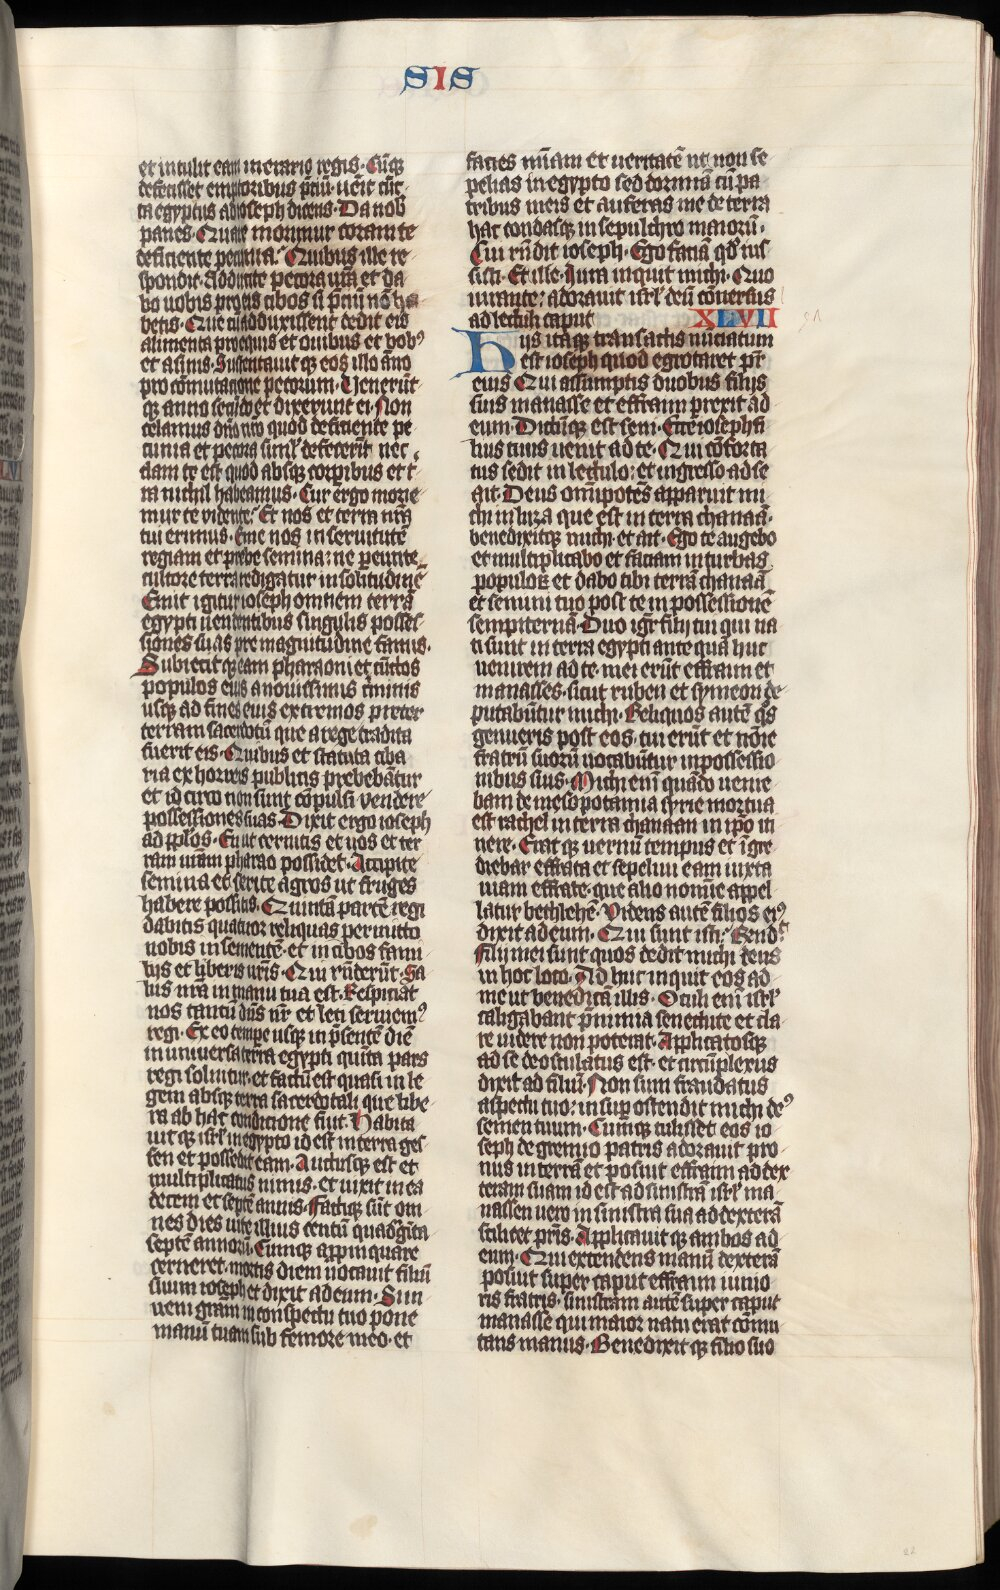 SIS
et intulit eam in erario regis. Cūq̄
defecisset emptoribus p̄ciū. uēit cūc
ta egyptus ad ioseph dicens. Da nob̄
panes. Quare morimur coram te
deficiente pecunia? Quibus ille re
spondit. Adducite pecora ur̄a et da
bo uobis pro eis cibos si p̄ciū nō ha
betis. Que cū adduxissent dedit eis
alimenta pro equis et ouibus et bob⁹
et asinis. Sustentauit q̄ eos illo āno
pro cōmutatione pecorum. Uenerūt
q̄ anno secūdo et dixerunt ei. Non
celamus dn̄o nr̄o quod deficiente pe
cunia et pecora siml̄ defecerīt nec
clam te est quod absq̄ corporibus et t̄
ra nichil habeamus. Cur ergo morie
mur te vidente? Et nos et terra nr̄a
tui erimus. Eme nos in seruitutē
regiam et prebe semina: ne pereunte
cultore terra redigatur in solitudinē
Emit igitur ioseph omnem terrā
egypti uendentibus singulis posses
siones suas pre magnitudine famis.
Subiecit q̄ eam pharaoni et cūctos
populos eius a nouissimis t̄minis
usq̄ ad fines eius extremos preter
terram sacerdotū que a rege tradita
fuerit eis. Quibus et statuta ciba
ria ex horreis publicis prebebātur
et idcirco non sunt cōpulsi vendere
possessiones suas. Dixit ergo ioseph
ad pp̄los. En ut cernitis et uos et ter
ram ur̄am pharao possidet. Accipite
semina et serite agros ut fruges
habere possitis. Quintā partē regi
dabitis quatuor reliquas permitto
uobis in sementē. et in cibos fami
liis et liberis ur̄is. Qui rn̄derūt. Sa
lus nr̄a in manu tua est. Respiciat
nos tantū dn̄s nr̄ et leti seruiem⁹
regi. Ex eo tempe usq̄ in p̄sentē diē
in uniuersa terra egypti quīta pars
regi soluitur. et factū est quasi in le
gem absq̄ terra sacerdotali que libe
ra ab hac condicione fuit. Habita
uit q̄ isrl̄ in egypto id est in terra ges
sen et possedit eam. Auctusq̄ est et
multiplicatus nimis. et uixit in ea
decem et septē annis. Factiq̄ sūt om
nes dies uite illius centū quadgīta
septē annorū. Cumq̄ appinquare
cerneret mortis diem uocauit filiū
suum ioseph et dixit ad eum. Si in
ueni gram in conspectu tuo pone
manū tuam sub femore meo. et
facies m̄iam et ueritatē ut non se
pelias in egypto sed dormiā cū pa
tribus meis et auferas me de terra
hac condasq̄ in sepulchro maiorū.
Cui rn̄dit ioseph. Ego faciā qd̄ ius
sisti. Et ille. Iura inquit michi. Quo
iurante: adorauit isrl̄ deū cōuersus
ad lectuli caput XLVII
Hiis itaq̄ transactis nūciatum
est ioseph quod egrotaret pr̄
eius Qui assumptis duobus filiis
suis manasse et effraim prexit ad
eum. Dictūq̄ est seni. Ecce ioseph fi
lius tuus uenit ad te. Qui cōforta
tus sedit in lectulo: et ingresso ad se
ait. Deus omīpotēs apparuit mi
chi in luza que est in terra chanaā.
benedixitq̄ michi et ait. Ego te augebo
et multiplicabo et faciam in turbas
populoꝝ et dabo tibi terrā chanaā
et semini tuo post te in possessionē
sempiternā. Duo igr̄ filij tui qui na
ti sunt in terra egypti ante quā huc
uenirem ad te. mei erūt effraim et
manasses. sicut ruben et symeon de
putabūtur michi. Reliquos autē q̄s
genueris post eos. tui erūt et noīe
fratrū suorū uocabūtur in possessio
nibus suis. Michi enī quādo uenie
bam de mesopotamia syrie mortua
est rachel in terra chanaan in ip̄o iti
nere. Erat q̄ uernū tempus et īgre
diebar effrata et sepeliui eam iuxta
uiam effrate. que alio nomīe appel
latur bethleheē. Videns autē filios ei⁹
dixit ad eum. Qui sunt isti? Rend̄t
Filij mei sunt quos dedit michi deus
in hoc loco. Adhuc inquit eos ad
me ut benedicā illis. Oculi enī isrl̄
caligabant p̄ nimia senectute et cla
re uidere non poterat. Applicatosq̄
ad se deosculatus est. et circūplexus
dixit ad filiū. Non sum fraudatus
aspectu tuo: insup ostendit michi de⁹
semen tuum. Cumq̄ tulisset eos io
seph de gremio patris adorauit pro
nus in terrā et posuit effraim ad dex
teram suam id est ad sinistrā isrl̄ ma
nassen uero in sinistra sua ad dexterā
scilicet pr̄is. Applicauit q̄ ambos ad
eum. Qui extendens manū dexterā
posuit super caput effraim iunio
ris fratris. sinistram autē super caput
manasse qui maior natu erat cōmu
tans manus. Benedixit q̄ filio suo